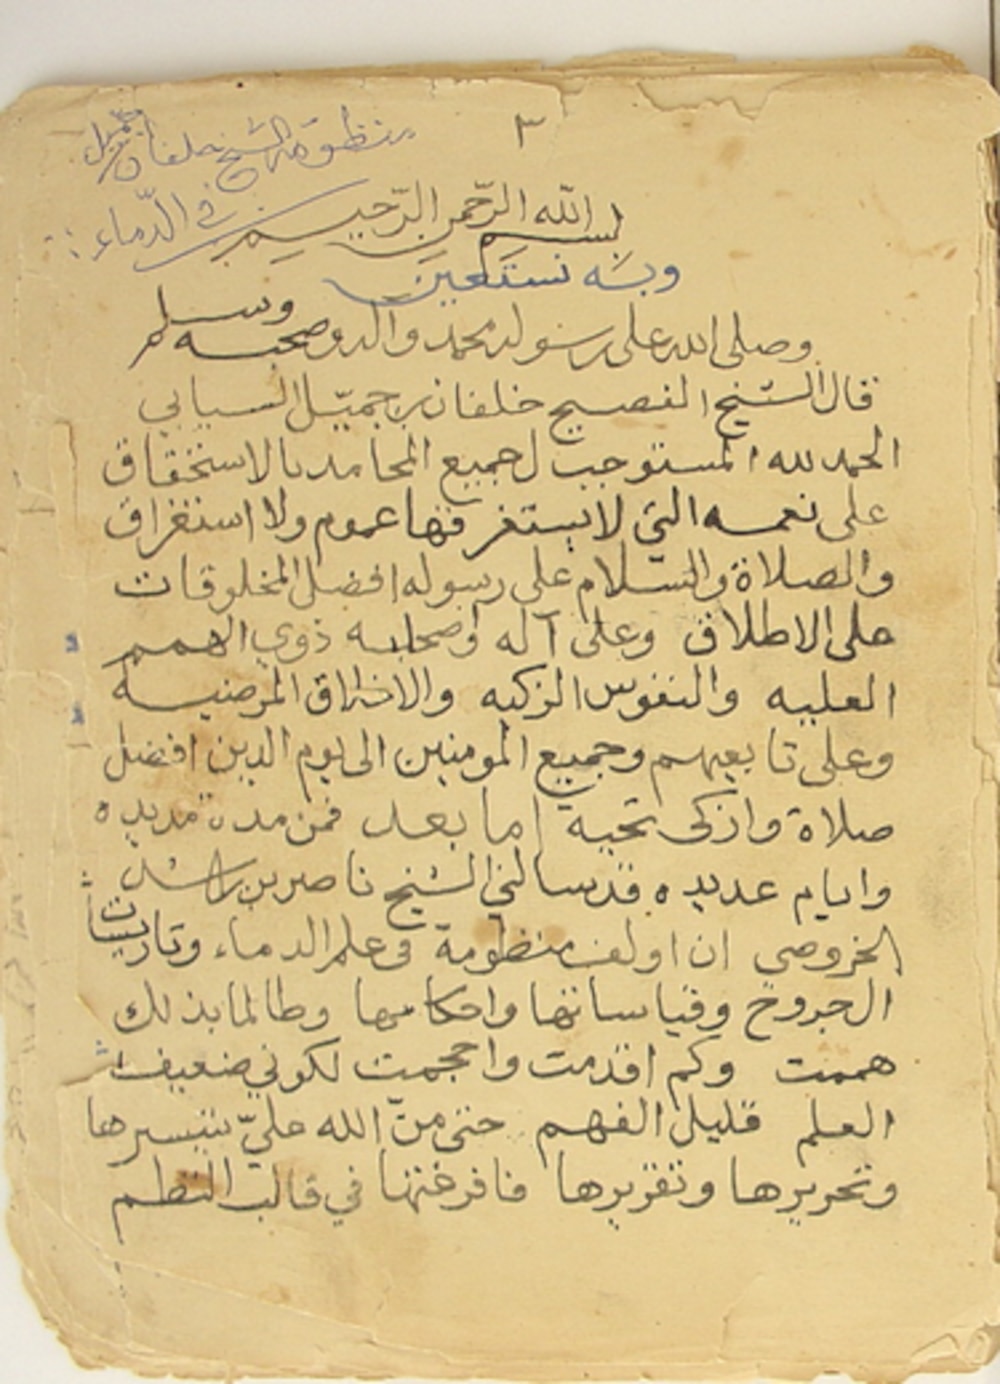 ٣
منظومة الشيخ خلفان بن جميل
في الدّماء
بسم الله الرّحمن الرّحيم
وبه نستعين
وصلى الله على رسوله محمد واله وصحبه وسلم
قال الشيخ الفصيح خلفان بن جميّل السيابي
الحمد لله المستوجب لجميع المحامد بالاستحقاق
على نعمه التي لا يستغرقها عموم ولا استغراق
والصلاة والسلام على رسوله افضل المخلوقات
على الاطلاق وعلى آله وصحابه ذوي الهمم
العليه والنفوس الزكيه والاخلاق المرضيه
وعلى تابعيهم وجميع المومنين الى يوم الدين افضل
صلاة وازكى تحية اما بعد فمن مدة مديده
وايام عديده قد سالني الشيخ ناصر بن راشد
الخروصي ان اولف منظومة في علم الدماء وتاريشات
الجروح وقياساتها واحكامها وطالما بذلك
هممت وكم اقدمت واحجمت لكوني ضعيف
العلم قليل الفهم حتى منّ الله عليّ بتيسيرها
وتحريرها وتقريرها فافرغتها في قالب النظم